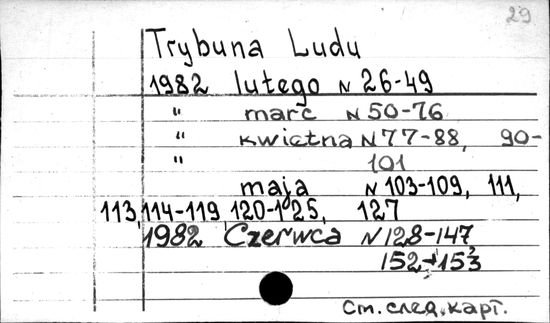 29
Trybuna Ludu
1982 lutego N 26-49
" marc N 50-76
" kwietna N 77-88, 90-
" 101
maja N 103-109, 111,
113, 114-119, 120-125, 127
1982 Czerwca N 128-147
152-153
См. след. карт.